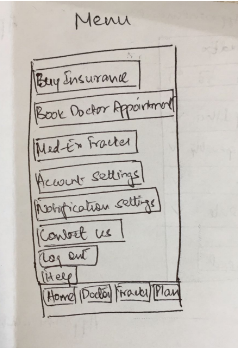 Menu
Buy Insurance
Book Doctor Appointment
Med-Ex Tracker
Account settings
Notification settings
Contact us
Log out
Help
Home Doctor Tracker Plan